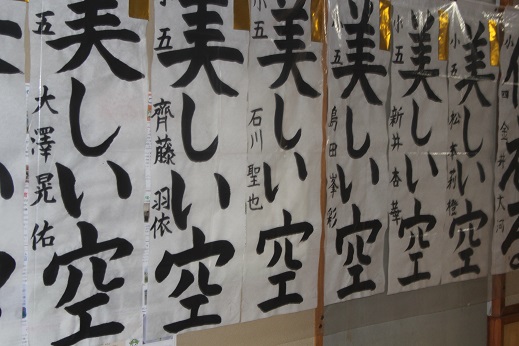 美しい空
五 大澤晃佑
美しい空
小五 齊藤羽依
美しい空
石川聖也
美しい空
小五 島田峯彩
美しい空
小五 新井杏華
美しい空
小五 松本莉橙
四 金井大河